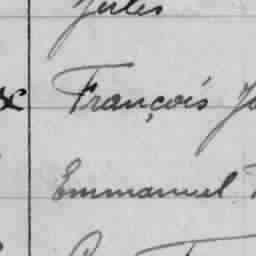 Jules
François
Emmanuel